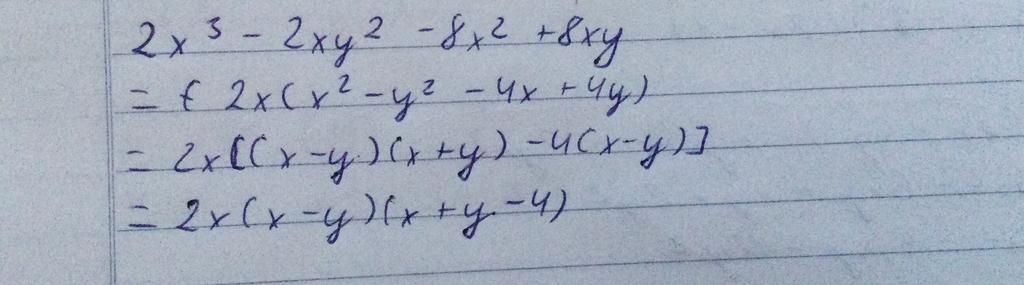 2x³ - 2xy² - 8x² + 8xy
= ( 2x(x² - y² - 4x + 4y)
= 2x[(x-y)(x+y) - 4(x-y)]
= 2x(x-y)(x+y-4)